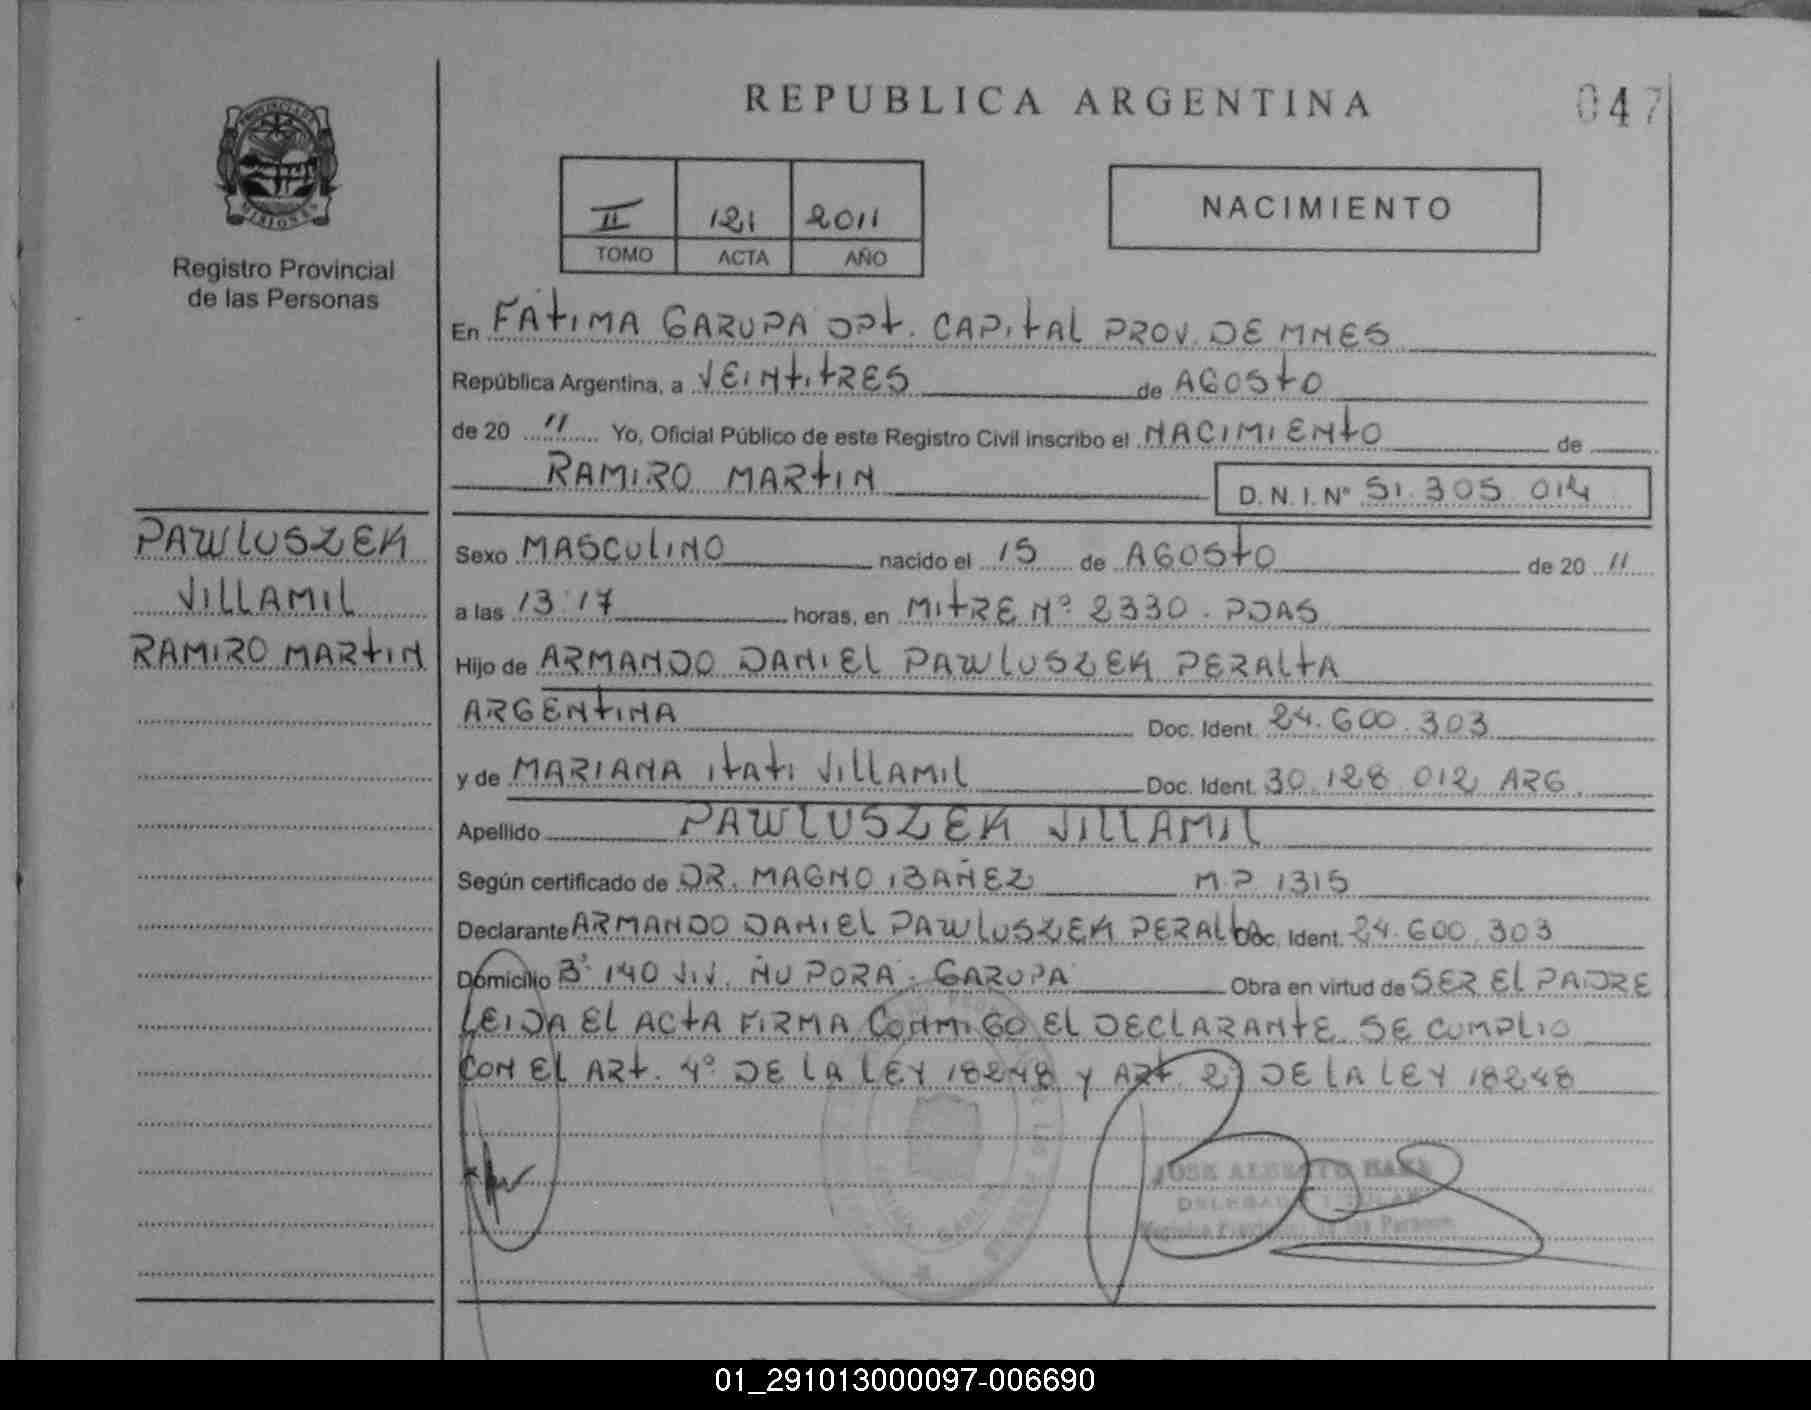 REPUBLICA ARGENTINA
047
PROVINCIA DE
MISIONES
Registro Provincial
de las Personas
II 121 2011
TOMO ACTA AÑO
NACIMIENTO
En FATIMA GARUPA DPT. CAPITAL PROV. DE MNES
República Argentina, a VEINTITRES de AGOSTO
de 20 11 Yo, Oficial Público de este Registro Civil inscribo el NACIMIENTO de
RAMIRO MARTIN D.N.I. Nº 51.305.014
PAWLUSZEK
VILLAMIL
RAMIRO MARTIN
Sexo MASCULINO nacido el 15 de AGOSTO de 20 11
a las 13:17 horas, en MITRE Nº 2330. PDAS
Hijo de ARMANDO DANIEL PAWLUSZEK PERALTA
ARGENTINA Doc. Ident. 24.600.303
y de MARIANA ITATI VILLAMIL Doc. Ident. 30.128.012 ARG.
Apellido PAWLUSZEK VILLAMIL
Según certificado de DR. MAGNO IBAÑEZ M.P 1315
Declarante ARMANDO DANIEL PAWLUSZEK PERALTA Doc. Ident. 24.600.303
Domicilio Bº 140 VIV. ÑU PORA. GARUPA Obra en virtud de SER EL PADRE
LEIDA EL ACTA FIRMA CONMIGO EL DECLARANTE. SE CUMPLIO
CON EL ART. 4º DE LA LEY 18248 Y ART. 2 DE LA LEY 18248
JOSE ALBERTO
DELEGADO TITULAR
Registro Provincial de las Personas
01_291013000097-006690